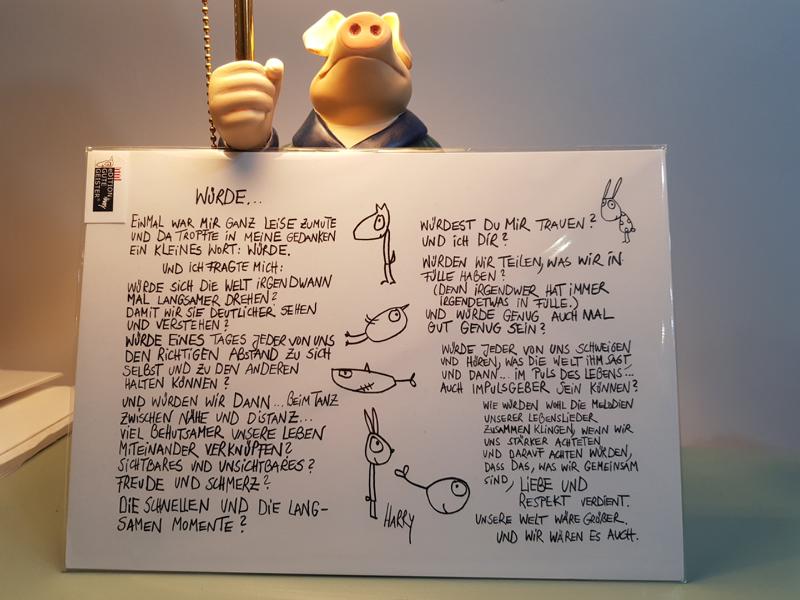 EDITION
GUTE
GEISTER
WÜRDE...
EINMAL WAR MIR GANZ LEISE ZUMUTE
UND DA TROPFTE IN MEINE GEDANKEN
EIN KLEINES WORT: WÜRDE.
UND ICH FRAGTE MICH:
WÜRDE SICH DIE WELT IRGENDWANN
MAL LANGSAMER DREHEN?
DAMIT WIR SIE DEUTLICHER SEHEN
UND VERSTEHEN?
WÜRDE EINES TAGES JEDER VON UNS
DEN RICHTIGEN ABSTAND ZU SICH
SELBST UND ZU DEN ANDEREN
HALTEN KÖNNEN?
UND WÜRDEN WIR DANN... BEIM TANZ
ZWISCHEN NÄHE UND DISTANZ...
VIEL BEHUTSAMER UNSERE LEBEN
MITEINANDER VERKNÜPFEN?
SICHTBARES UND UNSICHTBARES?
FREUDE UND SCHMERZ?
DIE SCHNELLEN UND DIE LANG-
SAMEN MOMENTE?
HARRY
WÜRDEST DU MIR TRAUEN?
UND ICH DIR?
WÜRDEN WIR TEILEN, WAS WIR IN
FÜLLE HABEN?
(DENN IRGENDWER HAT IMMER
IRGENDETWAS IN FÜLLE.)
UND WÜRDE GENUG AUCH MAL
GUT GENUG SEIN?
WÜRDE JEDER VON UNS SCHWEIGEN
UND HÖREN, WAS DIE WELT IHM SAGT
UND DANN... IM PULS DES LEBENS...
AUCH IMPULSGEBER SEIN KÖNNEN?
WIE WÜRDEN WOHL DIE MELODIEN
UNSERER LEBENSLIEDER
ZUSAMMEN KLINGEN, WENN WIR
UNS STÄRKER ACHTETEN
UND DARAUF ACHTEN WÜRDEN,
DASS DAS, WAS WIR GEMEINSAM
SIND, LIEBE UND
RESPEKT VERDIENT.
UNSERE WELT WÄRE GRÖßER.
UND WIR WÄREN ES AUCH.